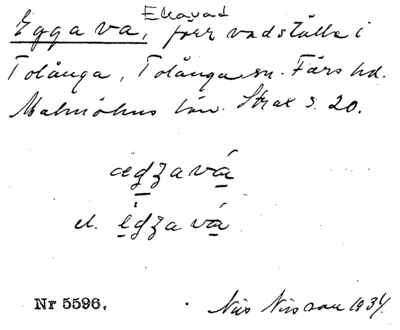 Ekavad
Eggava, förr vadställe i
Tolånga, Tolånga sn. Färs hd.
Malmöhus län. Strax s. 20.
ægzavá
el. ègzavá
Nr 5596. Nils Nilsson 1934.